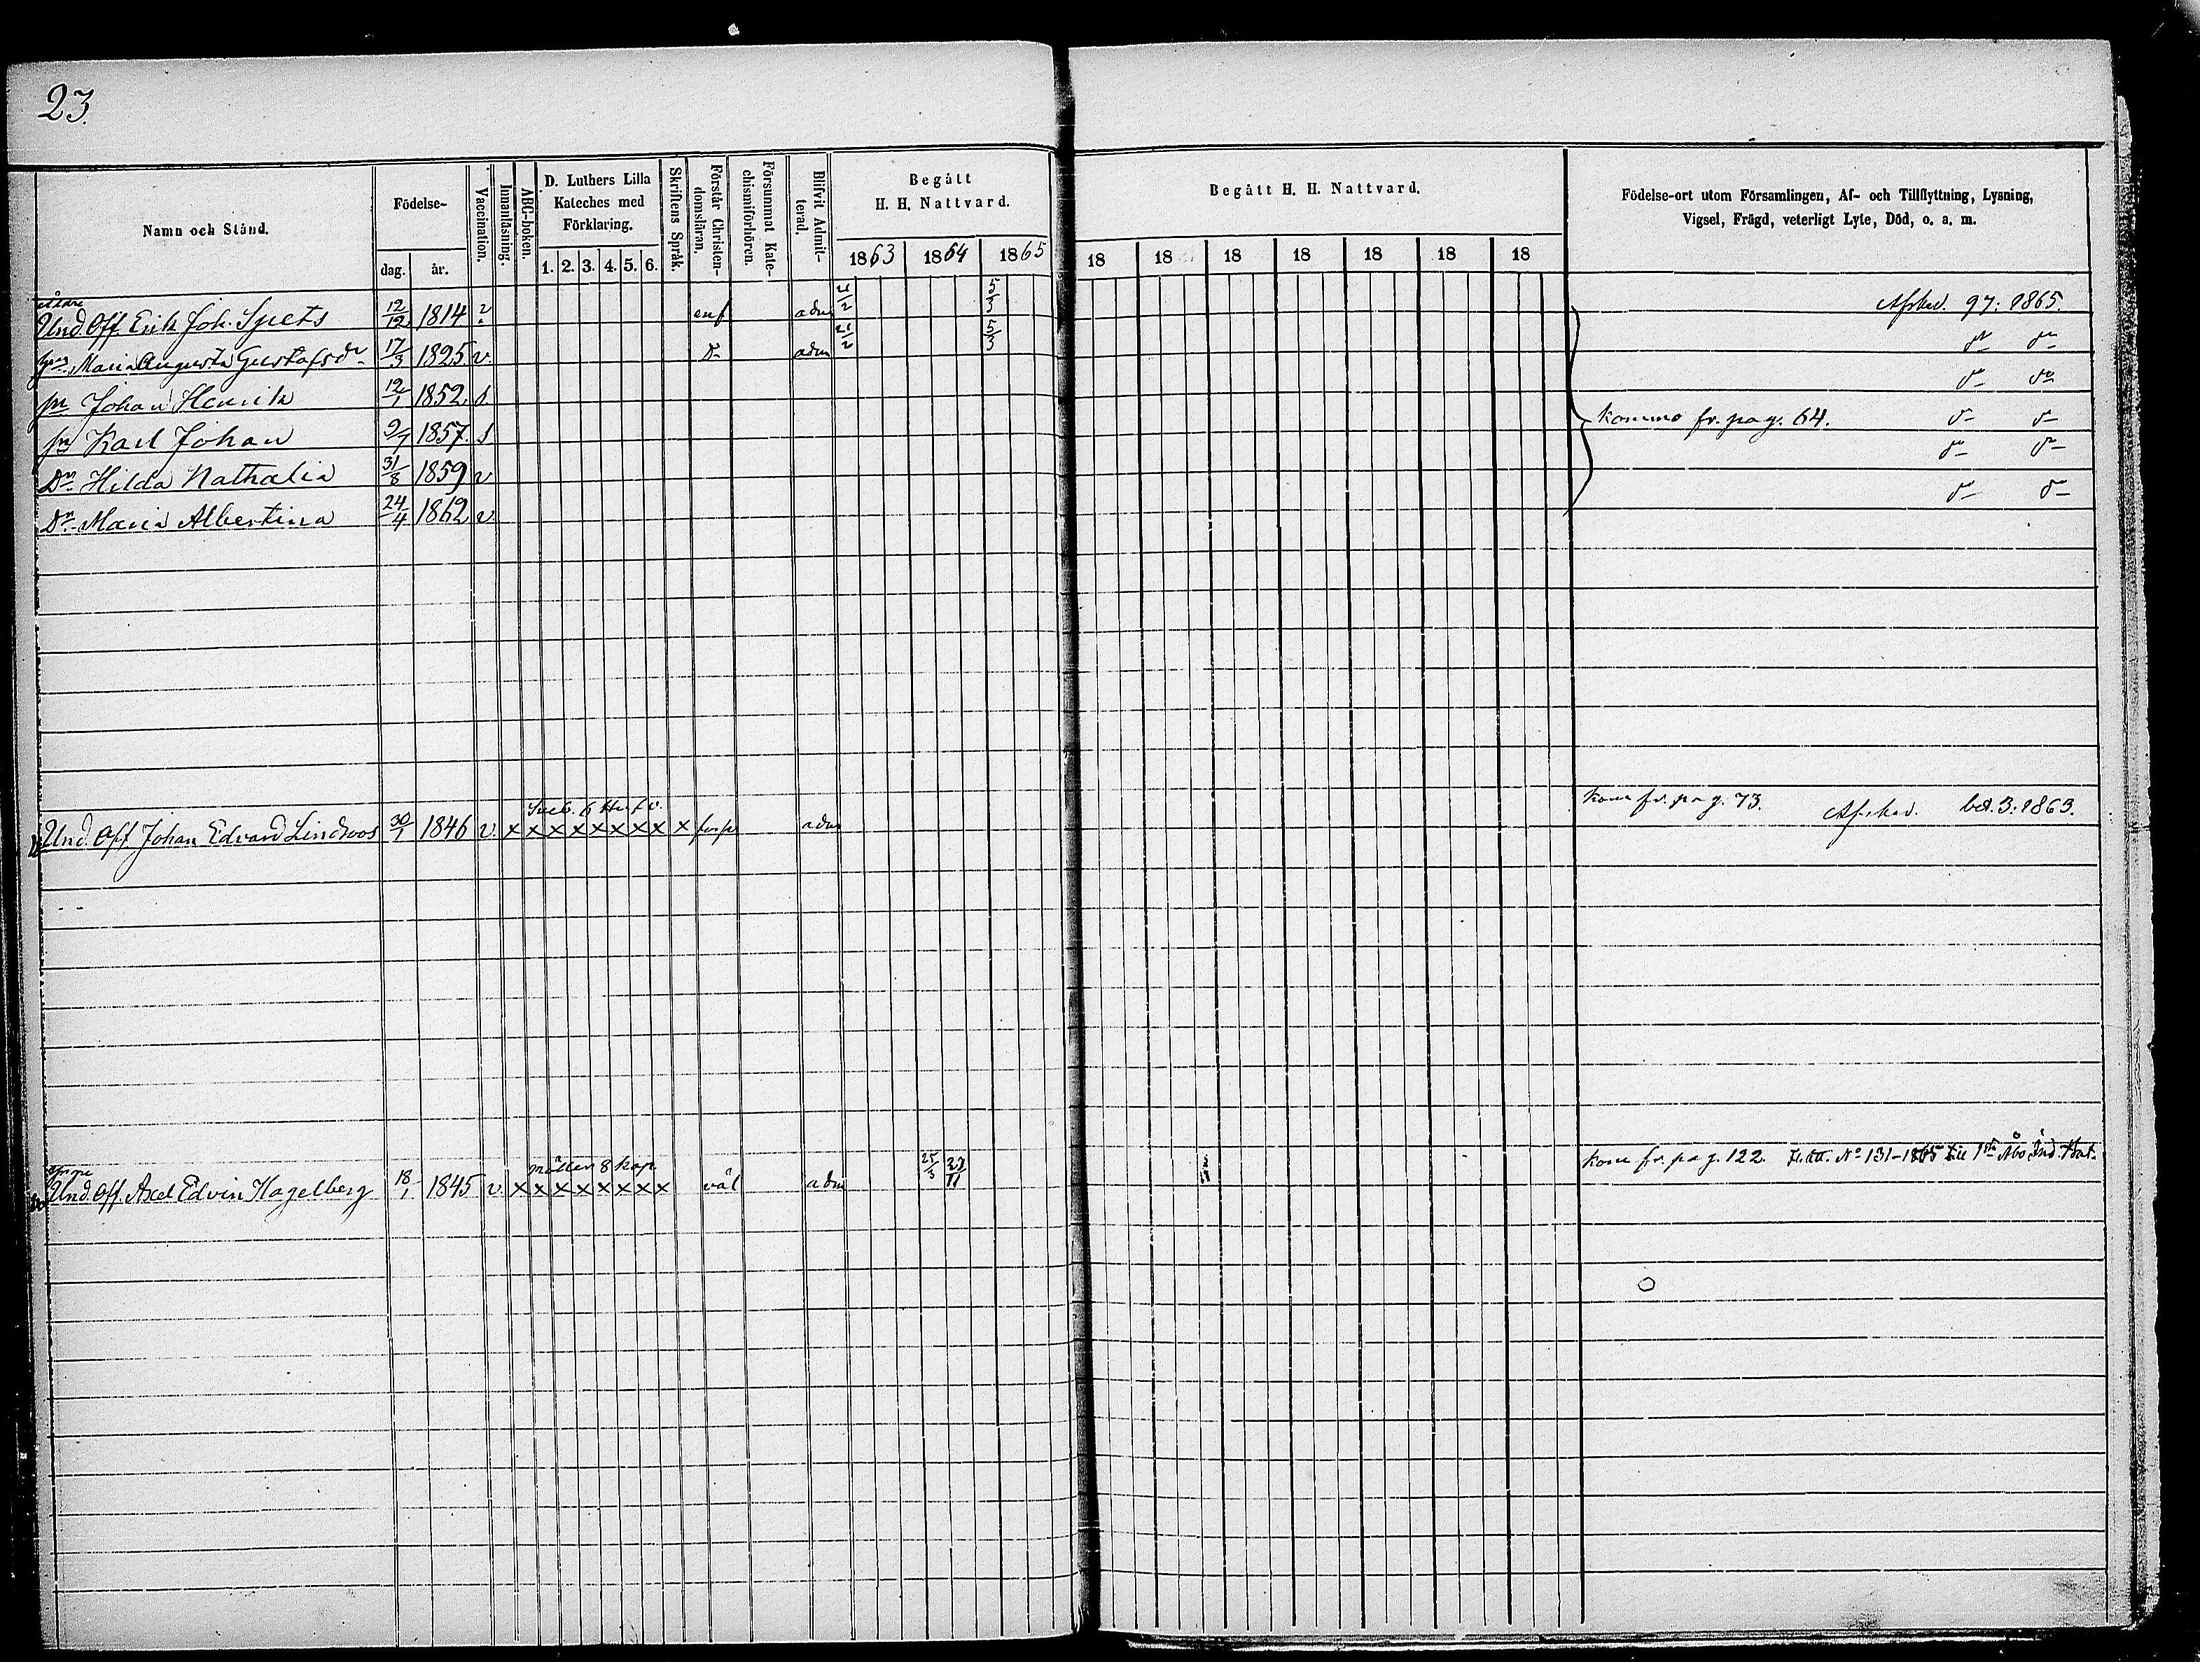 23.
Namn och Stånd.
Födelse-
dag.
år.
Vaccination.
Innanläsning.
ABC-boken.
D. Luthers Lilla
Kateches med
Förklaring.
1. 2. 3. 4. 5. 6.
Skriftens Språk.
Förstår Christen-
domsläran.
Försummat Kate-
chismiförhören.
Blifvit Admit-
terad.
Begått
H. H. Nattvard.
1863 1864 1865
Begått H. H. Nattvard.
18 18 18 18 18 18 18
Födelse-ort utom Församlingen, Af- och Tillflyttning, Lysning,
Vigsel, Frägd, veterligt Lyte, Död, o. a. m.
äldre
Und. Off. Erik Joh. Spets 12/12 1814 ? enf adm 21/2 5/3 Afsked. 97: 1865.
Maria Augusta Gustafsdr 17/3 1825 v. d- adm 21/2 5/3 do do
sn Johan Henrik 12/1 1852 s do do
sn Karl Johan 9/7 1857. s komma fr. pag. 64. do do
Dr Hilda Nathalia 31/8 1859 v do do
Dr Maria Albertina 24/4 1862 v do do
Und. Off Johan Edvard Lindroos 30/1 1846 v. x x x x x x x x x x adm kom fr. pag. 73. Afsked. bet. 3: 1863.
yngre
Und. Off. Axel Edvin Hagelberg 18/1 1845 v x x x x x x x x väl adm 25/3 27/11 kom fr. pag. 122. No 131-1865 till 1sta Åbo Ind. Bat.
8 kap